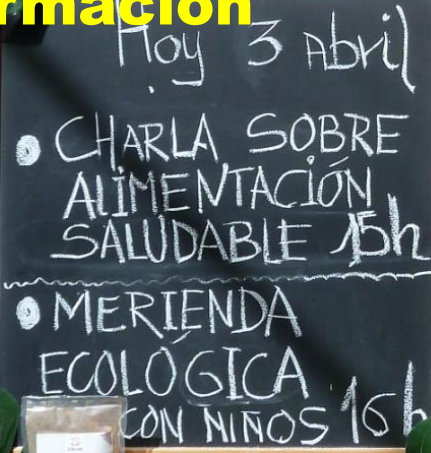 rmación
Hoy 3 Abril
CHARLA SOBRE
ALIMENTACIÓN
SALUDABLE 15h
MERIENDA
ECOLÓGICA
CON NIÑOS 16h